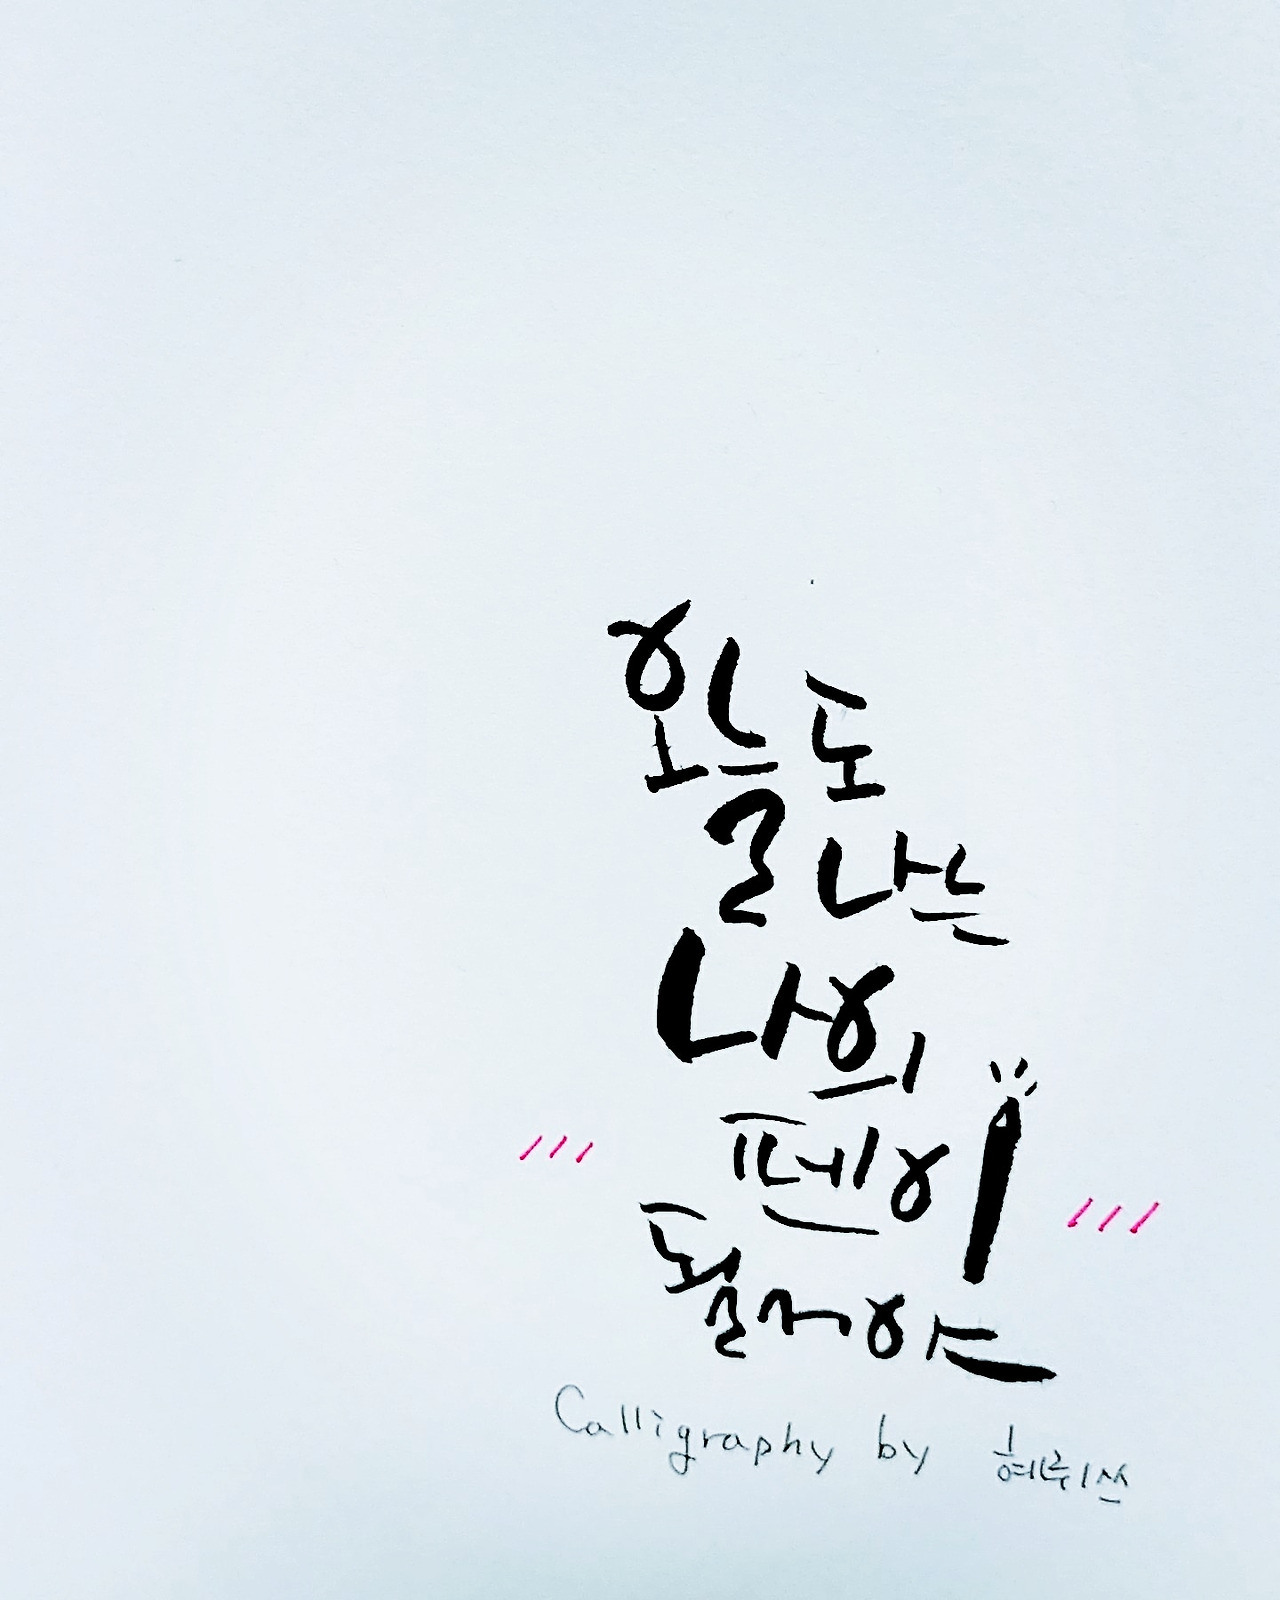 오늘도
나는
나의
펜이
될거야
Calligraphy by 혜뤼쓰